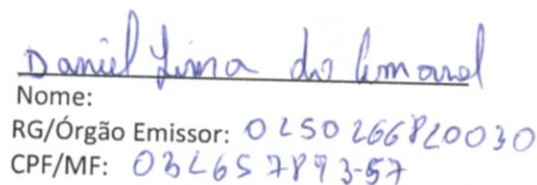 Daniel Lima do Amaral
Nome:
RG/Órgão Emissor: 0250266820030
CPF/MF: 032657893-57